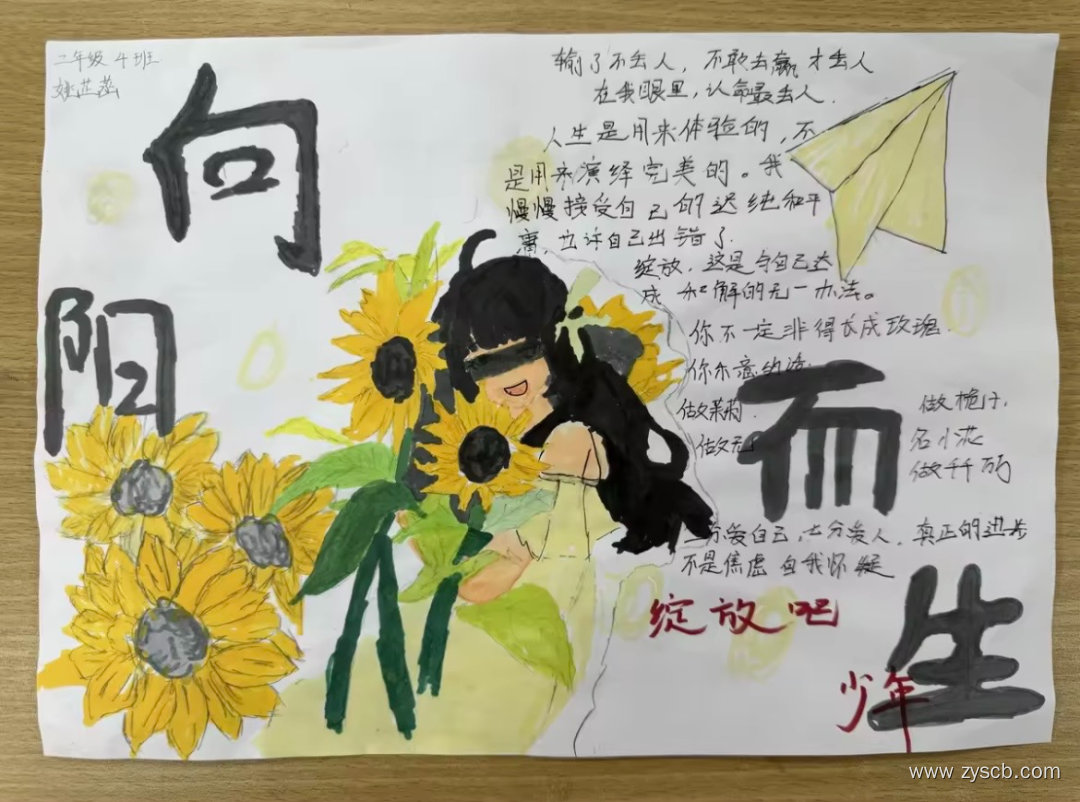 二年级 4班
向
阳
而
生
输了不丢人，不敢去赢才丢人
在我眼里，认命最丢人.
人生是用来体验的，不
是用来演绎完美的。我
慢慢接受自己的迟钝和平
庸，允许自己出错了.
绽放，这是与自己达
成 和解的无一办法。
你不一定非得长成玫瑰.
你乐意的话
做茉莉. 做桅仔，
做无 名小蕊
做千万
三分爱自己，七分爱人. 真正的进步
不是焦虑 自我怀疑
绽放吧
少年
www.zyscb.com